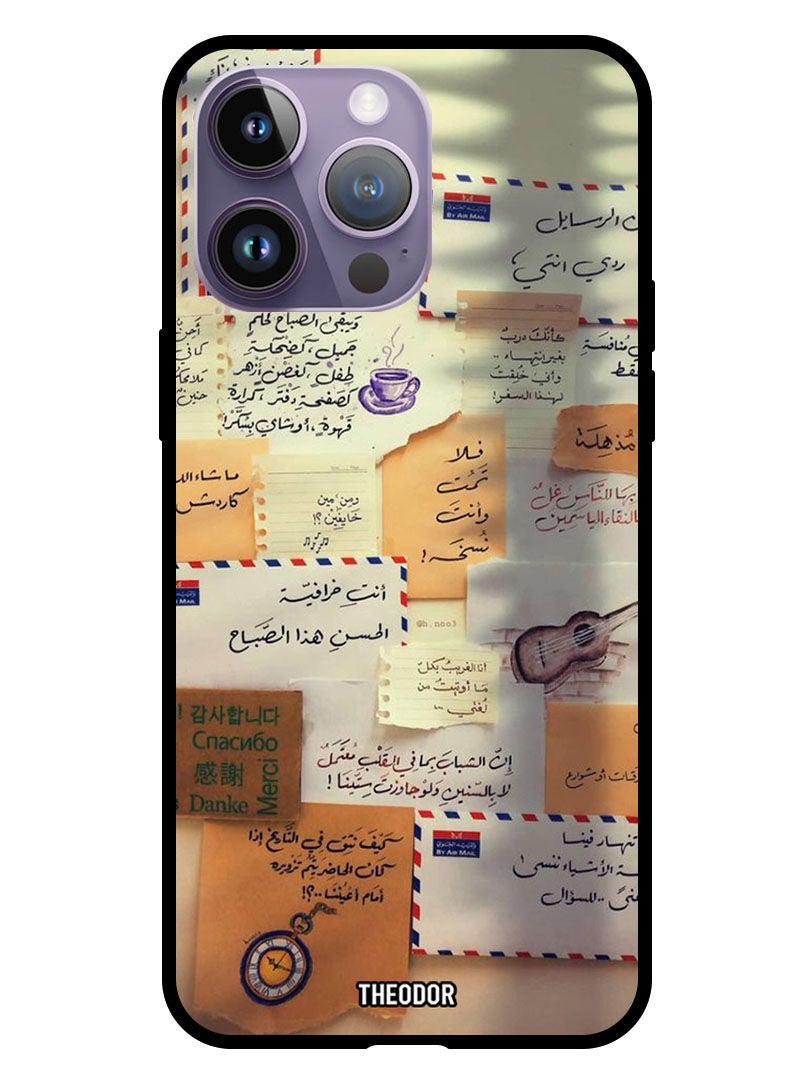 BY AIR MAIL
الرسايل
ردي انتي،
ويبقى الصباح كحلم
جميل، كضحكة
طفل، كغصن أزهر
كصفحة دفتر، كرارة
قهوةٍ، أو شاي بسُكّر!
كأنّك دربٌ
بغير انتهاء..
وأني خُلقتُ
لهذا السفر!
مُنافسة
فقط
مُذهِلة
فلا
تمُت
وأنتَ
نُسخة!
ما شاء الله
كاردش
ومن مين
خايفين ؟!
بها للنّاس غلٌ
بالنقاء الياسمين
BY AIR MAIL
أنتِ خرافيّة
الحسنِ هذا الصَّباح
@h.noo3
أنا الغريبُ بكلّ
ما أوتيتُ من
لُغتي ...
! 감사합니다
Спасибо
感謝
Danke
Merci
إنّ الشبابَ بما في القلبِ مُعتملٌ
لا بالسّنينِ ولو جاوزتَ سِتّينا !
أو شوارع
كيفَ نثق في التّاريخ إذا
كان الحاضر يتم تزويره
أمام أعيُننا ..؟!
BY AIR MAIL
تنهار فينا
الأشياء ننسى
.. للسؤال
THEODOR